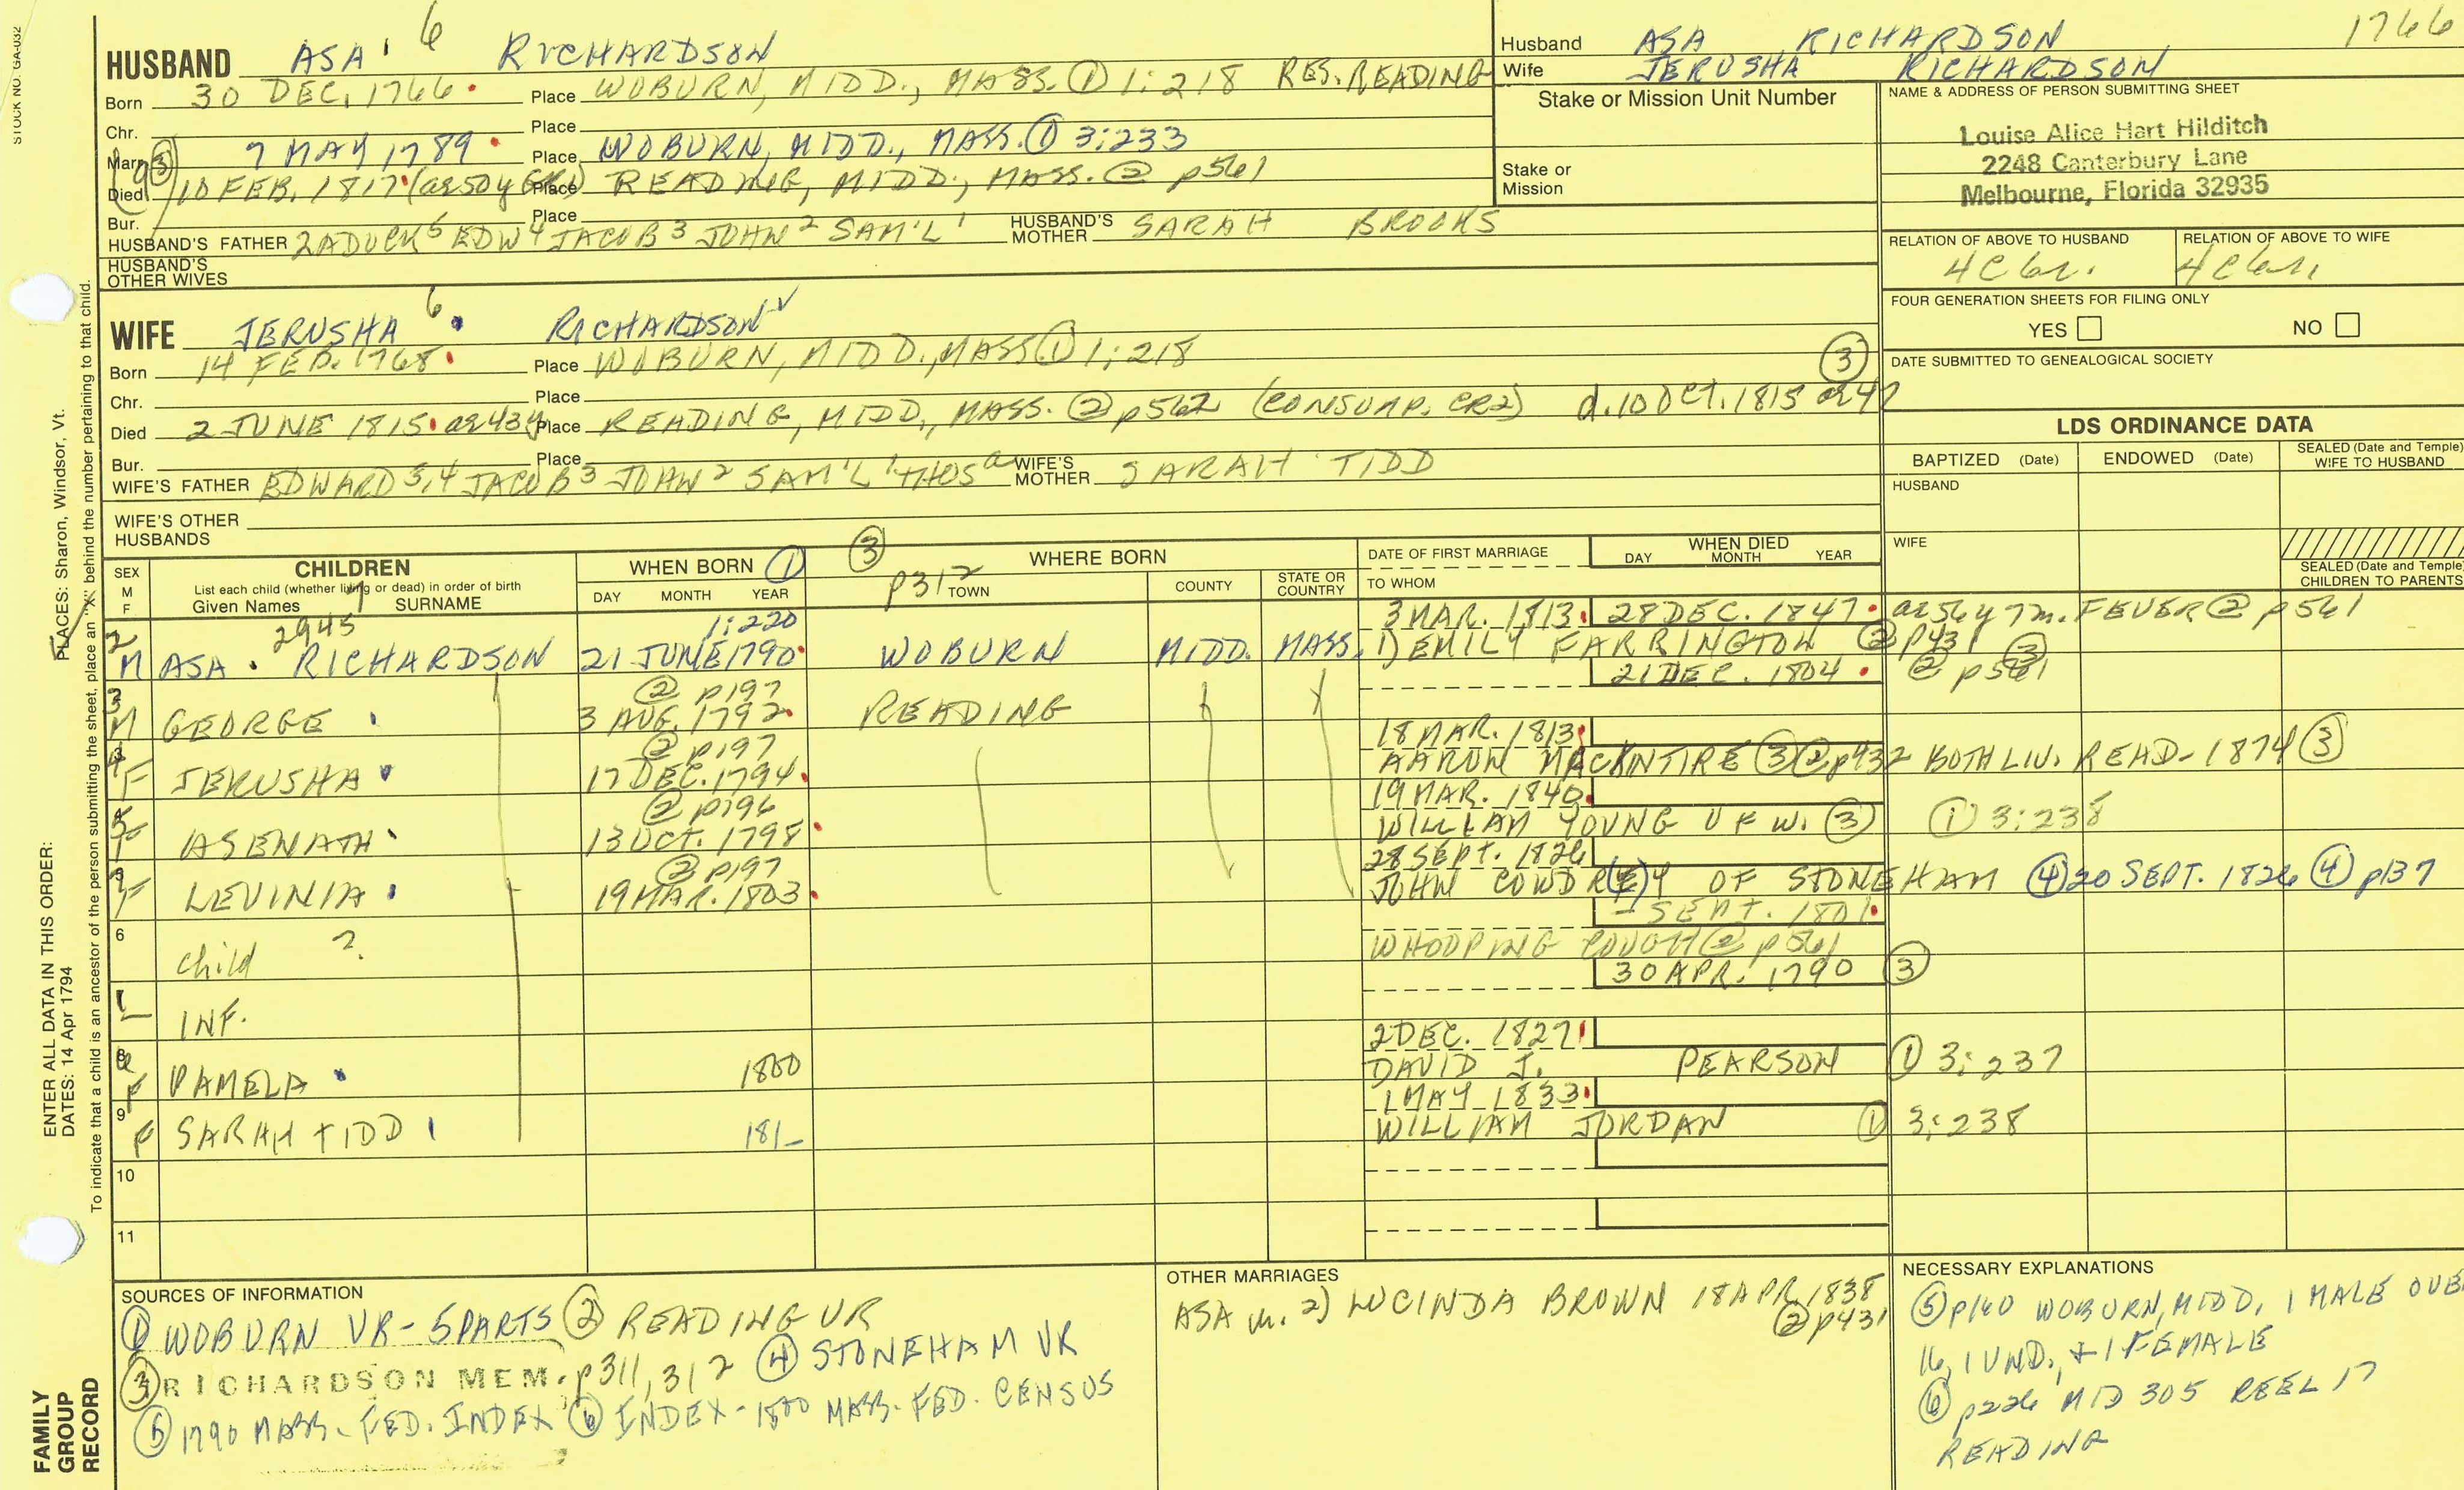 STOCK NO. GA-032
HUSBAND ASA 6 RICHARDSON
Born 30 DEC. 1766 Place WOBURN, MIDD., MASS. ① 1:218 RES. READING
Chr. Place
Marr. 7 MAY 1789 Place WOBURN, MIDD., MASS. ① 3:233
Died ③ 10 FEB. 1817 (ae 50y GR1) Place READING, MIDD., MASS. ② p561
Bur. Place
HUSBAND'S FATHER ZADOCK 5 EDW 4 JACOB 3 JOHN 2 SAM'L 1 HUSBAND'S MOTHER SARAH BROOKS
HUSBAND'S OTHER WIVES
Husband ASA RICHARDSON 1766
Wife JERUSHA RICHARDSON
Stake or Mission Unit Number
Stake or Mission
NAME & ADDRESS OF PERSON SUBMITTING SHEET
Louise Alice Hart Hilditch
2248 Canterbury Lane
Melbourne, Florida 32935
RELATION OF ABOVE TO HUSBAND RELATION OF ABOVE TO WIFE
4C 6r. 4C 6r.
FOUR GENERATION SHEETS FOR FILING ONLY
YES NO
DATE SUBMITTED TO GENEALOGICAL SOCIETY
WIFE JERUSHA 6 RICHARDSON
Born 14 FEB. 1768 Place WOBURN, MIDD., MASS ① 1:218
Chr. Place
Died 2 JUNE 1815 ae 43y Place READING, MIDD., MASS. ② p562 (CONSUMP. CR2) d. 10 OCT. 1815 ae 47 ③
Bur. Place
WIFE'S FATHER EDWARD 5,4 JACOB 3 JOHN 2 SAM'L 1 THOS a WIFE'S MOTHER SARAH TIDD
WIFE'S OTHER HUSBANDS
LDS ORDINANCE DATA
BAPTIZED (Date) ENDOWED (Date) SEALED (Date and Temple) WIFE TO HUSBAND
HUSBAND
WIFE
SEALED (Date and Temple) CHILDREN TO PARENTS
SEX M F
CHILDREN
List each child (whether living or dead) in order of birth
Given Names 7 SURNAME
WHEN BORN ①
DAY MONTH YEAR
③ p312 WHERE BORN
TOWN COUNTY STATE OR COUNTRY
DATE OF FIRST MARRIAGE
TO WHOM
WHEN DIED
DAY MONTH YEAR
2945 1:220 3 MAR. 1813 28 DEC. 1847 ae 56y 7m. FEVER ② p561
2 M ASA RICHARDSON 21 JUNE 1790 WOBURN MIDD. MASS. 1) EMILY FARRINGTON ② p431 ③
② p197 21 DEC. 1804 ② p561
3 M GEORGE 3 AUG. 1792 READING
② p197 18 MAR. 1813
4 F JERUSHA 17 DEC. 1794 AARON MACKINTIRE ③ ② p432 BOTH LIV. READ- 1874 ③
② p196 19 MAR. 1840
5 F ASENATH 13 OCT. 1798 WILLIAM YOUNG OF W. ③ ① 3:238
② p197 28 SEPT. 1826
F LEVINIA 19 MAR. 1803 JOHN COWDR(E)Y OF STONEHAM ④ 20 SEPT. 1826 ④ p137
- SEPT. 1801
6 child ? WHOOPING COUGH ② p561
30 APR. 1790 ③
1 INF.
2 DEC. 1827
8 F PAMELA 1800 DAVID J. PEARSON ① 3:237
1 MAY 1833
9 F SARAH TIDD 181_ WILLIAM JORDAN ① 3:238
10
11
SOURCES OF INFORMATION
① WOBURN VR - 5 PARTS ② READING VR
③ RICHARDSON MEM. p311, 312 ④ STONEHAM VR
⑤ 1790 MASS. FED. INDEX ⑥ INDEX - 1800 MASS. FED. CENSUS
OTHER MARRIAGES
ASA m. 2) LUCINDA BROWN 18 APR. 1838
② p431
NECESSARY EXPLANATIONS
⑤ p160 WOBURN, MIDD, 1 MALE OVE
16, 1 UND., + 1 FEMALE
⑥ p226 MID 305 REEL 17
READING
ENTER ALL DATA IN THIS ORDER:
DATES: 14 Apr 1794
PLACES: Sharon, Windsor, Vt.
To indicate that a child is an ancestor of the person submitting the sheet, place an "X" behind the number pertaining to that child.
FAMILY
GROUP
RECORD